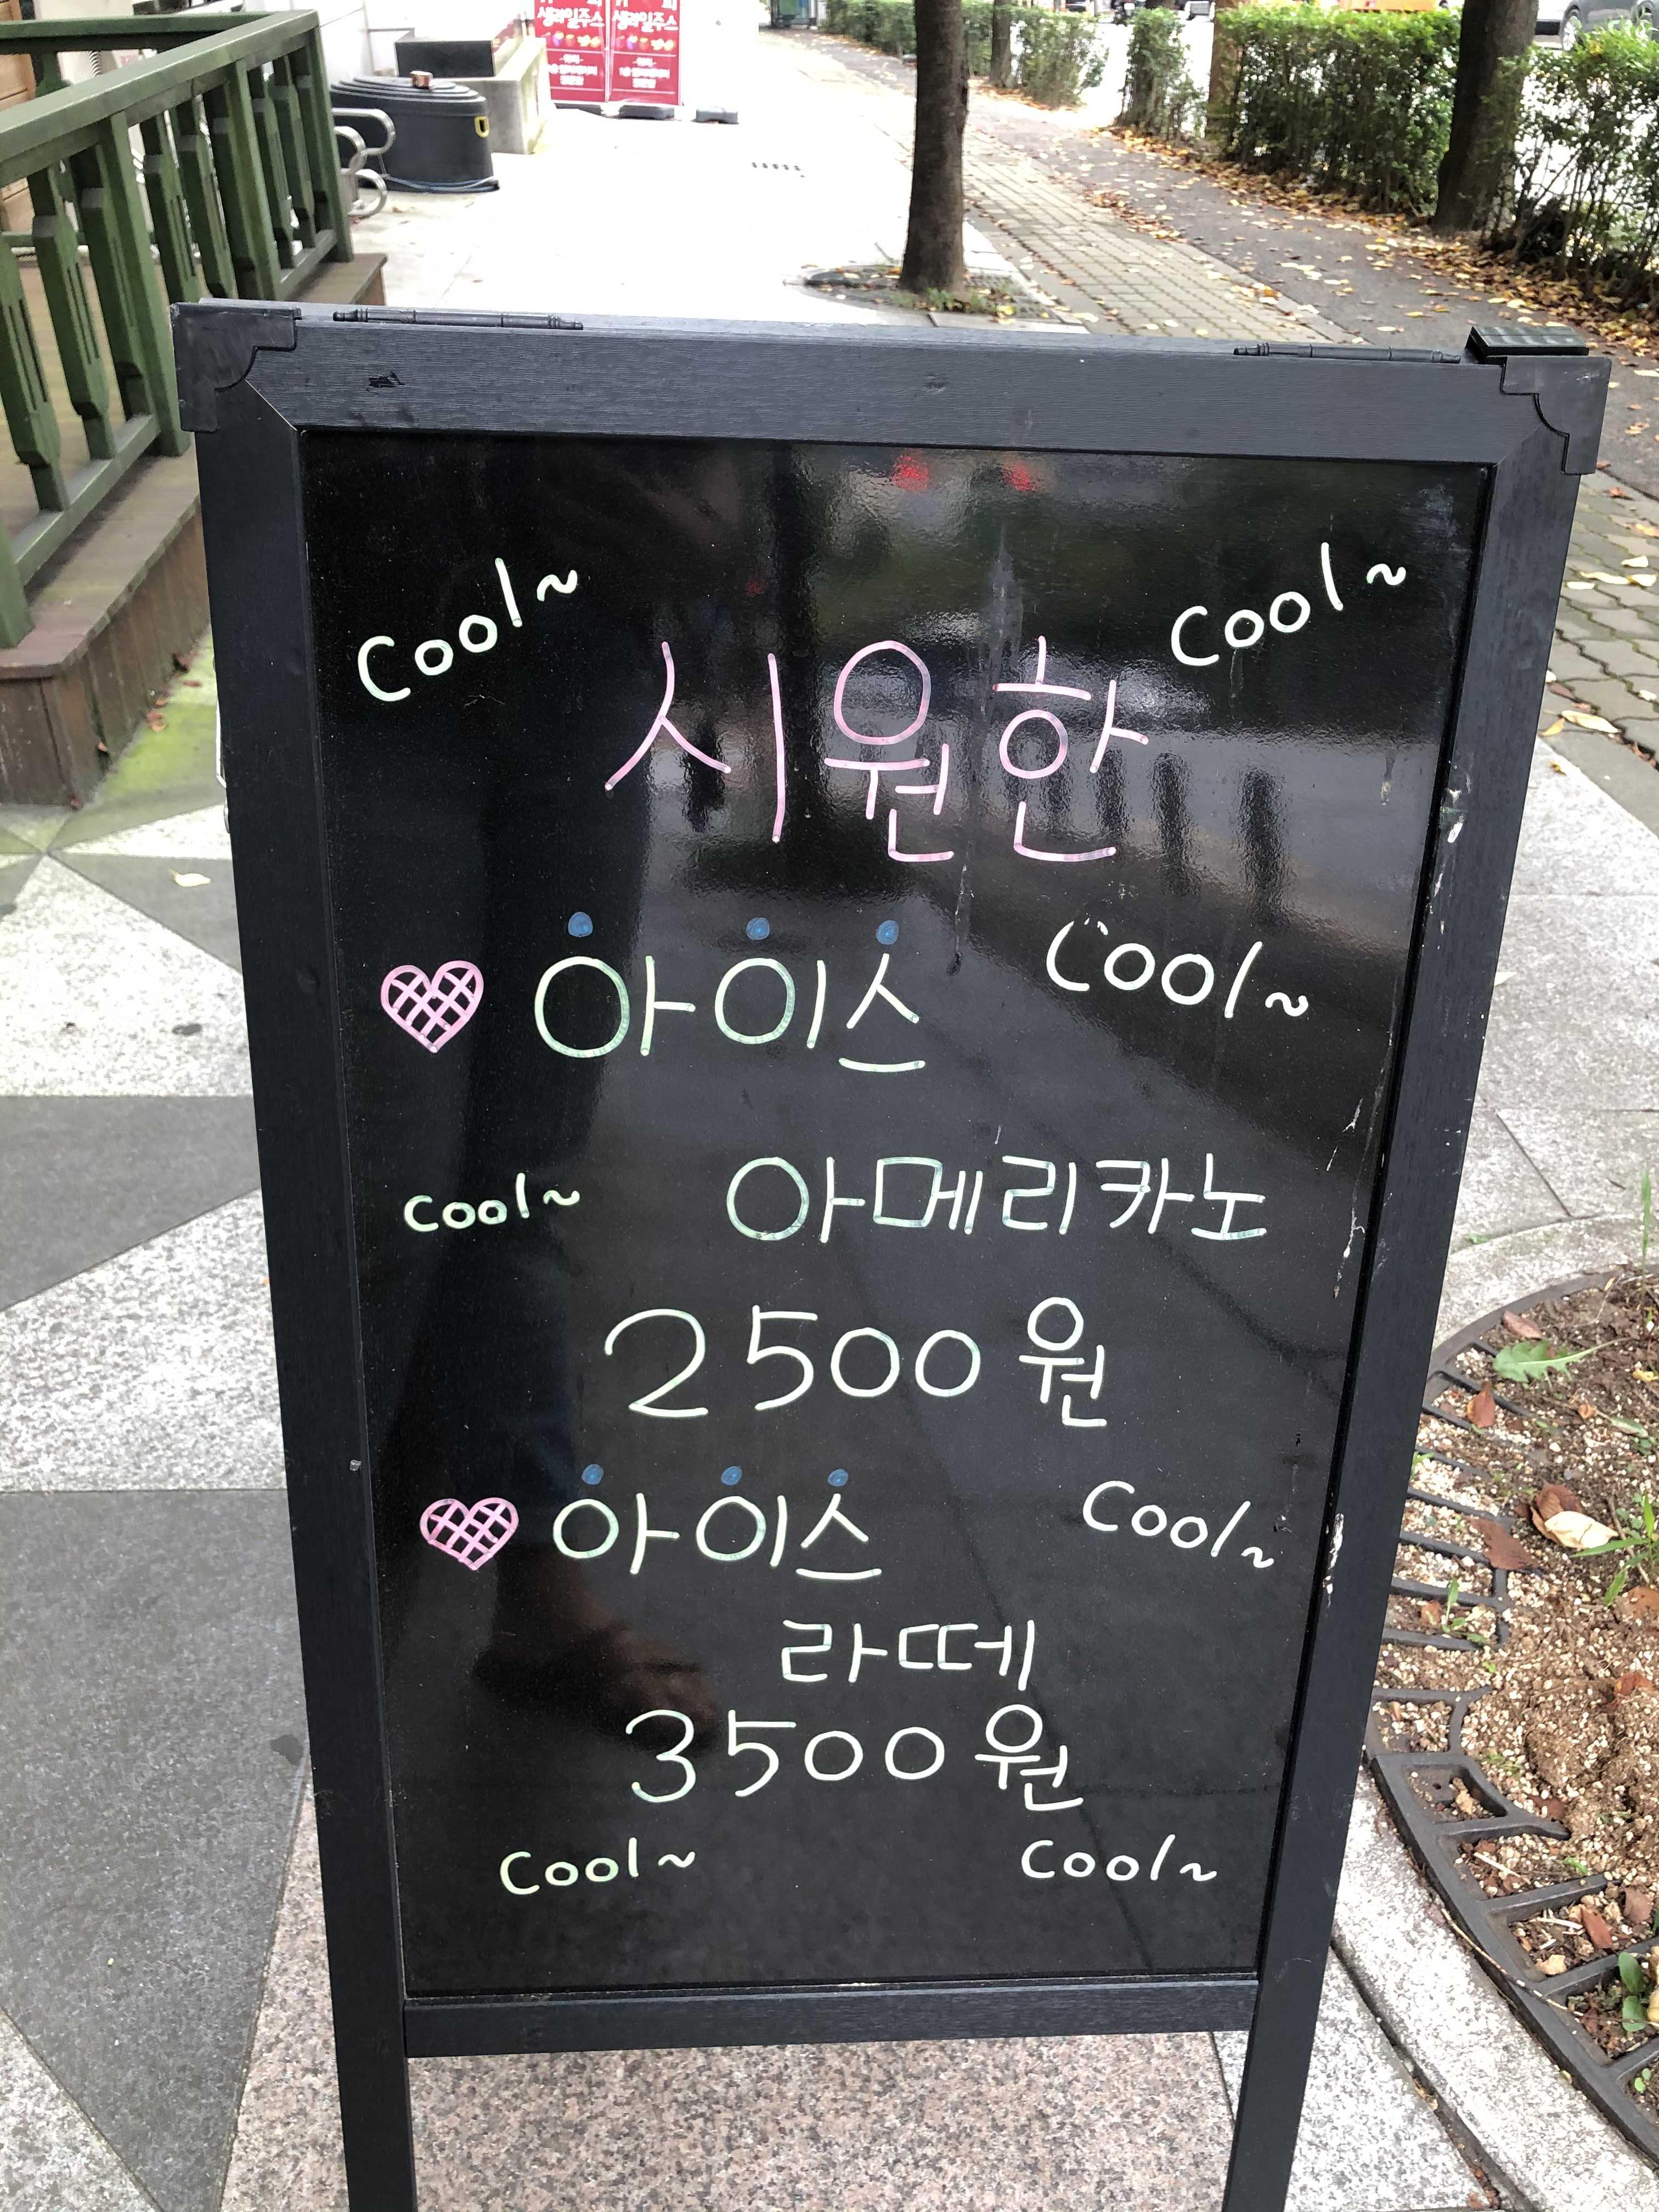 Cool~ Cool~
시원한
♥ 아이스 Cool~
Cool~ 아메리카노
2500원
♥ 아이스 Cool~
라떼
3500원
Cool~ Cool~